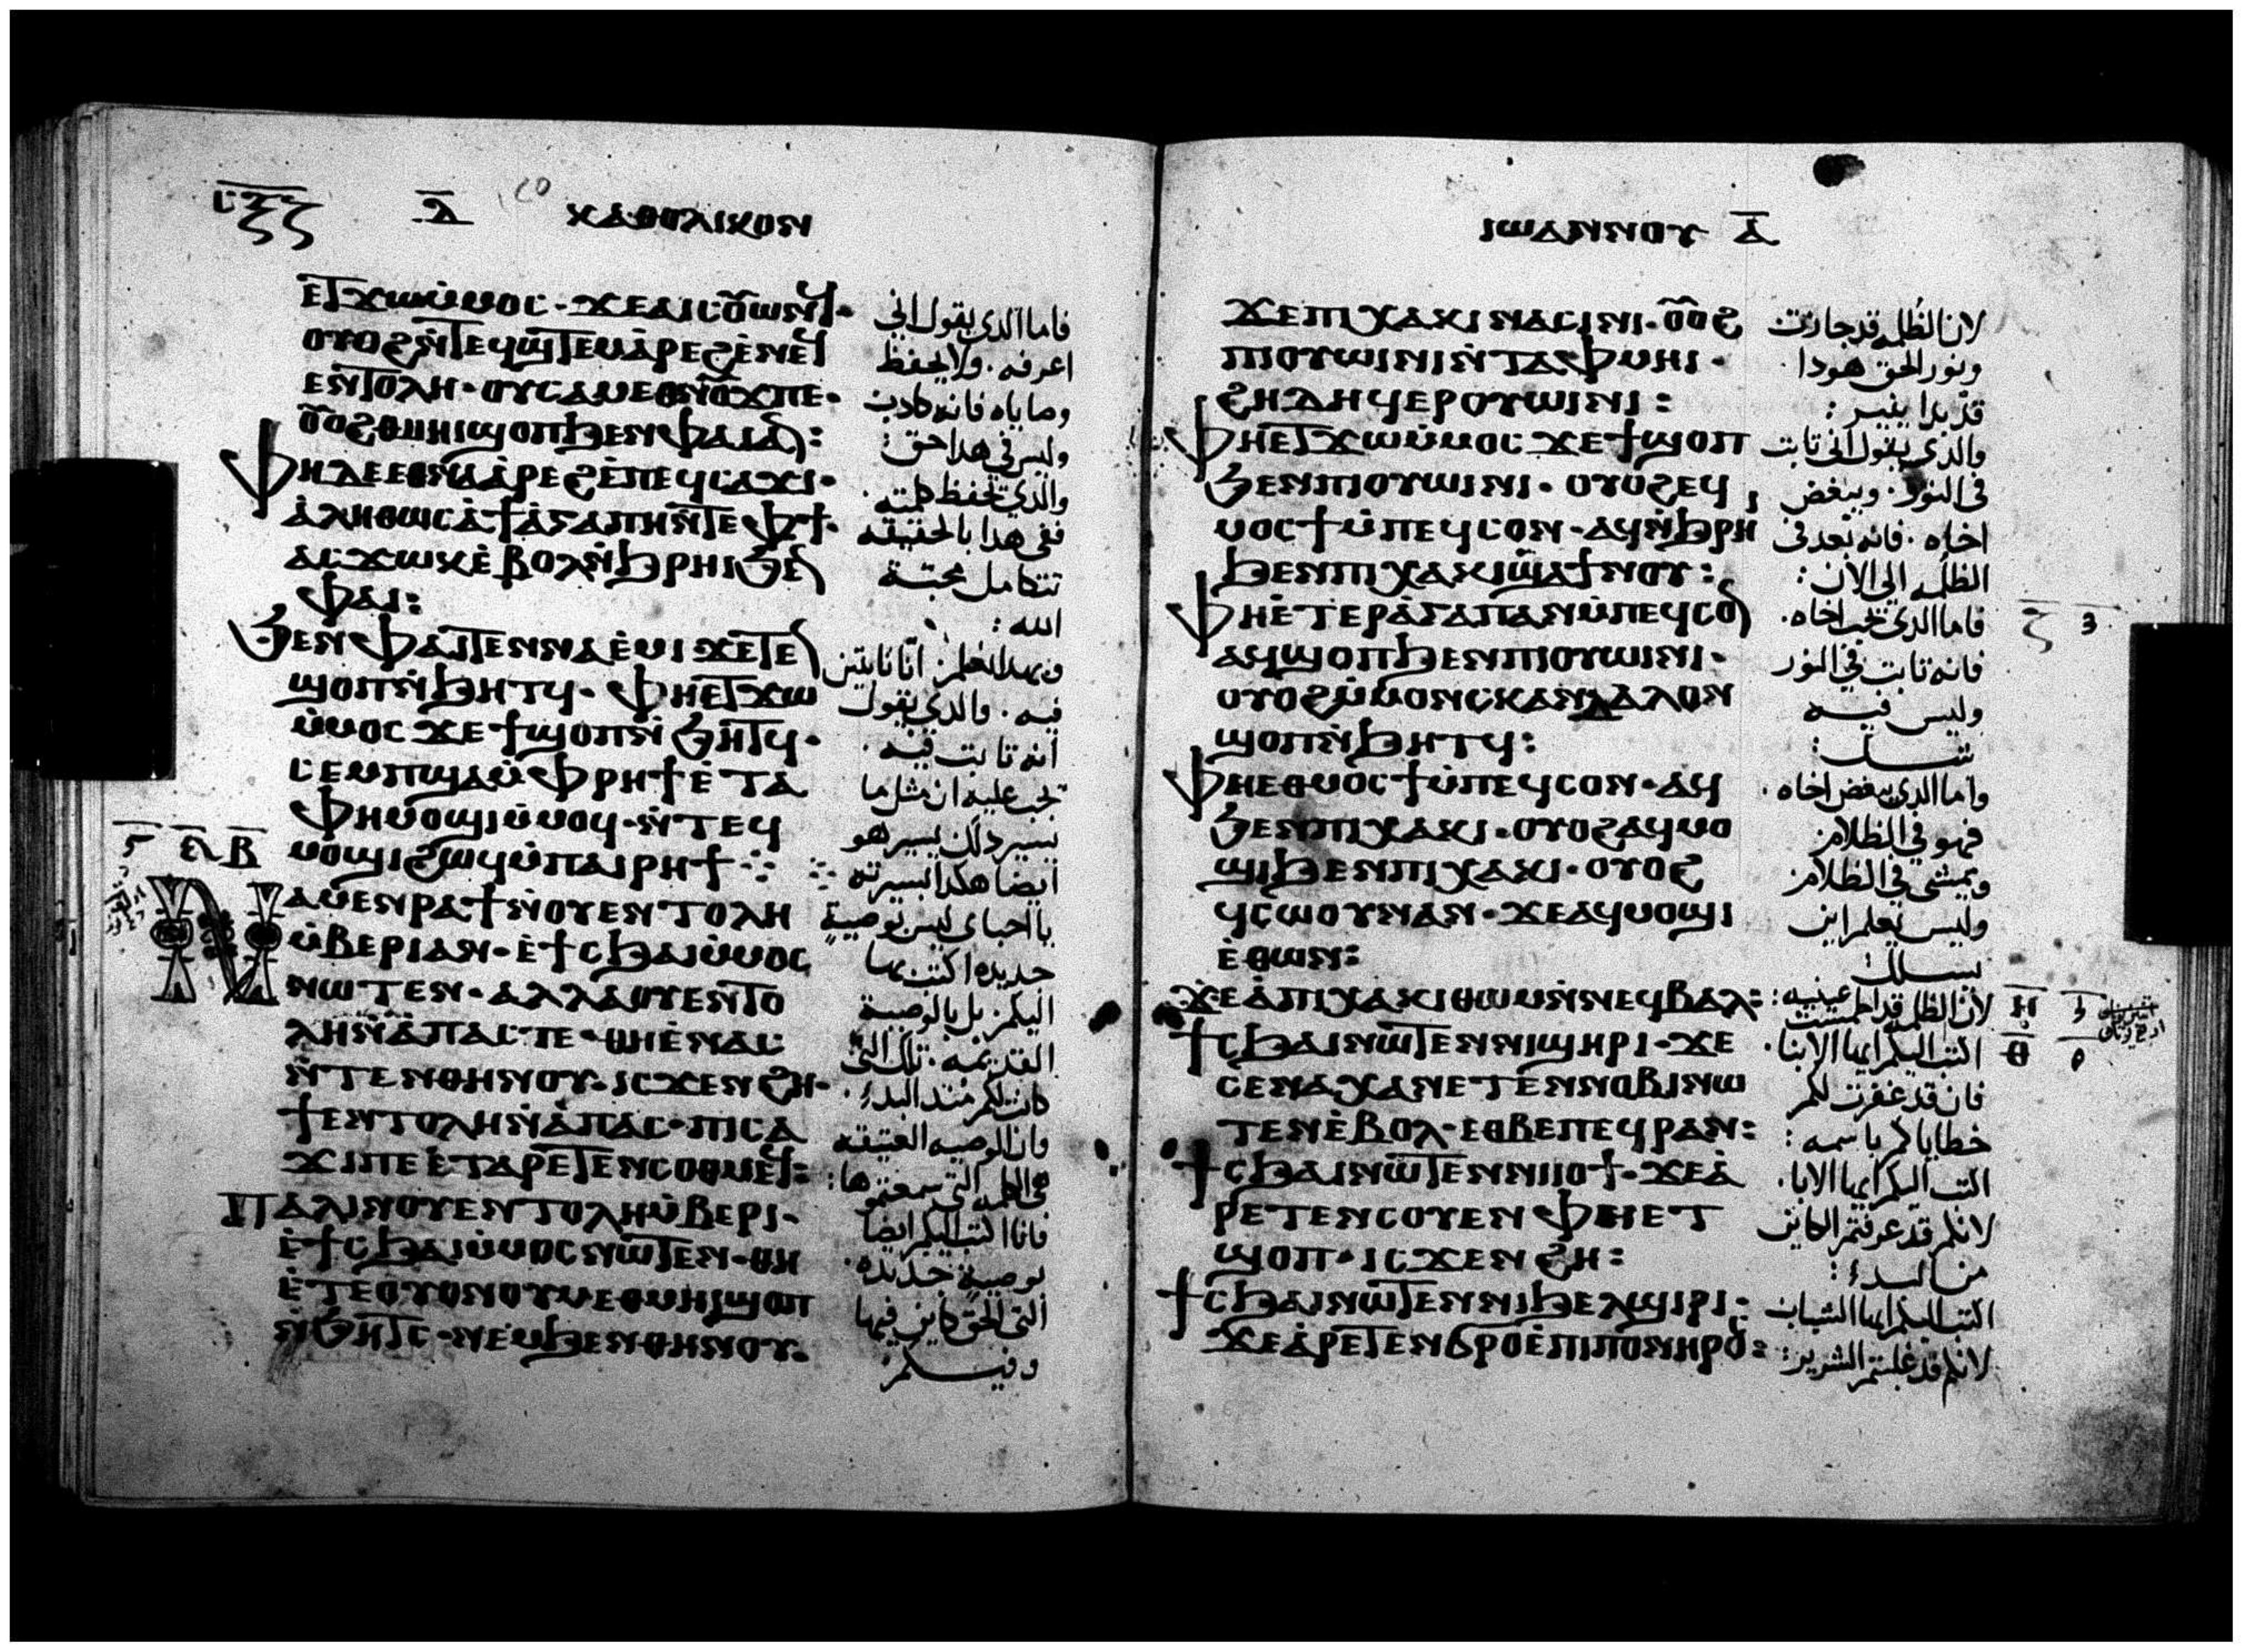 ⲥ̅ⲝ̅ⲍ̅ ⲁ̅ ⲕⲁⲑⲟⲗⲓⲕⲟⲛ
ⲉⲧϫⲱⲙ̀ⲙⲟⲥ· ϫⲉⲁⲓⲥⲟⲩⲱⲛϥ·
ⲟⲩⲟϩⲛ̀ⲧⲉϥϣⲧⲉⲙⲁ̀ⲣⲉϩⲉ̀ⲛⲉϥ
ⲉⲛⲧⲟⲗⲏ· ⲟⲩⲥⲁⲙⲉⲑⲛⲟⲩϫⲡⲉ·
ⲟⲩⲟϩⲑⲙⲏⲓϣⲟⲡϧⲉⲛⲫⲁⲓⲁⲛ:
ⲫⲏⲇⲉⲉⲑⲛⲁⲁ̀ⲣⲉϩⲉ̀ⲡⲉϥⲥⲁϫⲓ·
ⲁ̀ⲗⲏⲑⲱⲥⲁ̀ϯⲁ̀ⲅⲁⲡⲏⲛ̀ⲧⲉⲫϯ·
ⲁⲥϫⲱⲕⲉ̀ⲃⲟⲗⲛ̀ϧⲣⲏⲓϧⲉⲛ
ⲫⲁⲓ:
ϧⲉⲛⲫⲁⲓⲧⲉⲛⲛⲁⲉ̀ⲙⲓ ϫⲉⲧⲉⲛ
ϣⲟⲡⲛ̀ϧⲏⲧϥ· ⲫⲏⲉⲧϫⲱ
ⲙ̀ⲙⲟⲥ ϫⲉϯϣⲟⲡⲛ̀ϧⲏⲧϥ·
ⲥⲉⲙⲡϣⲁⲙ̀ⲫⲣⲏϯⲉ̀ⲧⲁ
ⲫⲏⲙⲟϣⲓⲙ̀ⲙⲟϥ·ⲛ̀ⲧⲉϥ
ⲙⲟϣⲓϩⲱϥⲙ̀ⲡⲁⲓⲣⲏϯ
ⲛⲁⲙⲉⲛⲣⲁϯⲛⲟⲩⲉⲛⲧⲟⲗⲏ
ⲙ̀ⲃⲉⲣⲓⲁⲛ·ⲉ̀ϯⲥϧⲁⲓⲙ̀ⲙⲟⲥ
ⲛⲱⲧⲉⲛ·ⲁⲗⲗⲁⲟⲩⲉⲛⲧⲟ
ⲗⲏⲛ̀ⲁ̀ⲡⲁⲥⲧⲉ·ⲑⲏⲉ̀ⲛⲁⲥ
ⲛ̀ⲧⲉⲛⲑⲏⲛⲟⲩ·ⲓⲥϫⲉⲛϩⲏ·
ϯⲉⲛⲧⲟⲗⲏⲛ̀ⲁ̀ⲡⲁⲥ·ⲡⲓⲥⲁ
ϫⲓⲡⲉⲉ̀ⲧⲁⲣⲉⲧⲉⲛⲥⲟⲑⲙⲉϥ:
ⲡⲁⲗⲓⲛⲟⲩⲉⲛⲧⲟⲗⲏⲙ̀ⲃⲉⲣⲓ·
ⲉ̀ϯⲥϧⲁⲓⲙ̀ⲙⲟⲥⲛⲱⲧⲉⲛ·ⲑⲏ
ⲉ̀ⲧⲉⲟⲩⲟⲛⲟⲩⲙⲉⲑⲙⲏⲓϣⲟⲡ
ⲛ̀ϧⲏⲧⲥ·ⲛⲉⲙϧⲉⲛⲑⲏⲛⲟⲩ·
فاما الدى يقول انى
اعرفه . ولا يحفظ
وصاياه فانه كادب
وليس فى هدا حق :
والدى يحفظ كلمته .
ففى هدا بالحقيقه
تتكامل محبة
الله :
وبهدا نعلم اننا ثابتين
فيه . والدى يقول
انه تابت فيه .
يجب عليه ان مثل ما
يسير داك يسير هو
ايضا هكدا بسيرته
يا احباى ليس بوصية
جديده اكتب بها
اليكم بل بالوصية
القديمه . تلك التى
كانت لكم مند البدء .
فان الوصيه العتيقه
هى الكلمه التى سمعتموها :
فانا اكتب اليكم ايضا
بوصية جديده .
التى الحق كاين فيها
وفيكم
ⲓⲱⲁⲛⲛⲟⲩ ⲁ̅
ϫⲉⲡⲓⲭⲁⲕⲓⲛⲁⲥⲓⲛⲓ·ⲟⲩⲟϩ
ⲡⲓⲟⲩⲱⲓⲛⲓⲛ̀ⲧⲁⲫⲙⲏⲓ·
ϩⲏⲇⲏϥⲉⲣⲟⲩⲱⲓⲛⲓ:
ⲫⲏⲉⲧϫⲱⲙ̀ⲙⲟⲥ ϫⲉϯϣⲟⲡ
ϧⲉⲛⲡⲓⲟⲩⲱⲓⲛⲓ· ⲟⲩⲟϩⲉϥ
ⲙⲟⲥϯⲙ̀ⲡⲉϥⲥⲟⲛ·ⲁϥⲛ̀ϧⲣⲏ
ϧⲉⲛⲡⲓⲭⲁⲕⲓϣⲁϯⲛⲟⲩ:
ⲫⲏⲉ̀ⲧⲉⲣⲁ̀ⲅⲁⲡⲁⲛⲙ̀ⲡⲉϥⲥⲟⲛ
ⲁϥϣⲟⲡϧⲉⲛⲡⲓⲟⲩⲱⲓⲛⲓ·
ⲟⲩⲟϩⲙ̀ⲙⲟⲛⲥⲕⲁⲛⲇⲁⲗⲟⲛ
ϣⲟⲡⲛ̀ϧⲏⲧϥ:
ⲫⲏⲉⲑⲙⲟⲥϯⲙ̀ⲡⲉϥⲥⲟⲛ·ⲁϥ
ϧⲉⲛⲡⲓⲭⲁⲕⲓ·ⲟⲩⲟϩⲁϥⲙⲟ
ϣⲓϧⲉⲛⲡⲓⲭⲁⲕⲓ·ⲟⲩⲟϩ
ϥⲥⲱⲟⲩⲛⲁⲛ·ϫⲉⲁϥⲙⲟϣⲓ
ⲉ̀ⲑⲱⲛ:
ϫⲉⲁ̀ⲡⲓⲭⲁⲕⲓⲑⲱⲙⲛ̀ⲛⲉϥⲃⲁⲗ:
ϯⲥϧⲁⲓⲛⲱⲧⲉⲛⲛⲓϣⲏⲣⲓ·ϫⲉ
ⲥⲉⲛⲁⲭⲁⲛⲉⲧⲉⲛⲛⲟⲃⲓⲛⲱ
ⲧⲉⲛⲉ̀ⲃⲟⲗ·ⲉⲑⲃⲉⲡⲉϥⲣⲁⲛ:
ϯⲥϧⲁⲓⲛⲱⲧⲉⲛⲛⲓⲓⲟϯ·ϫⲉⲁ̀
ⲣⲉⲧⲉⲛⲥⲟⲩⲉⲛ ⲫⲏⲉⲧ
ϣⲟⲡ·ⲓⲥϫⲉⲛϩⲏ:
ϯⲥϧⲁⲓⲛⲱⲧⲉⲛⲛⲓϧⲉⲗϣⲓⲣⲓ:
ϫⲉⲁ̀ⲣⲉⲧⲉⲛϭⲣⲟⲉ̀ⲡⲓⲡⲟⲛⲏⲣⲟⲥ:
لان الظلمه قد جازت
ونور الحق هودا
قد بدا ينير :
والدى يقول انى تابت
فى النور . ويبغض
اخاه . فانه بعد فى
الظلمه الى الان :
فاما الدى يحب اخاه .
فانه تابت فى النور
وليس فيه
شك :
واما الدى يبغض اخاه .
فهو فى الظلام
ويمشى فى الظلام
وليس يعلم اين
يسلك
لان الظلمه قد اطمست عينيه :
اكتب اليكم ايها الابنا .
فان قد غفرت لكم
خطاياكم باسمه :
اكتب اليكم ايها الابا .
لانكم قد عرفتم الكاين
من البدء :
اكتب اليكم ايها الشباب
لانكم قد غلبتم الشرير :